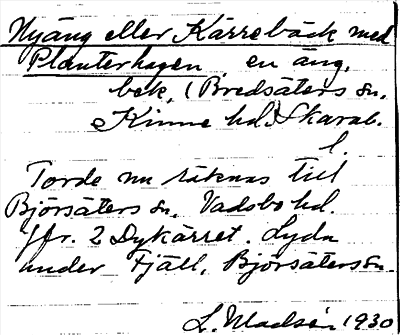 Nyäng eller Kärrebäck med
Planterhagen, en äng,
bek. (Bredsäters sn.
Kinne hd. Skarab.
l.
Torde nu räknas till
Björsäters sn. Vadsbo hd.
Jfr. 2 Dykärret. Lyda
under Fjäll, Björsäters sn.
L. Madsén 1930